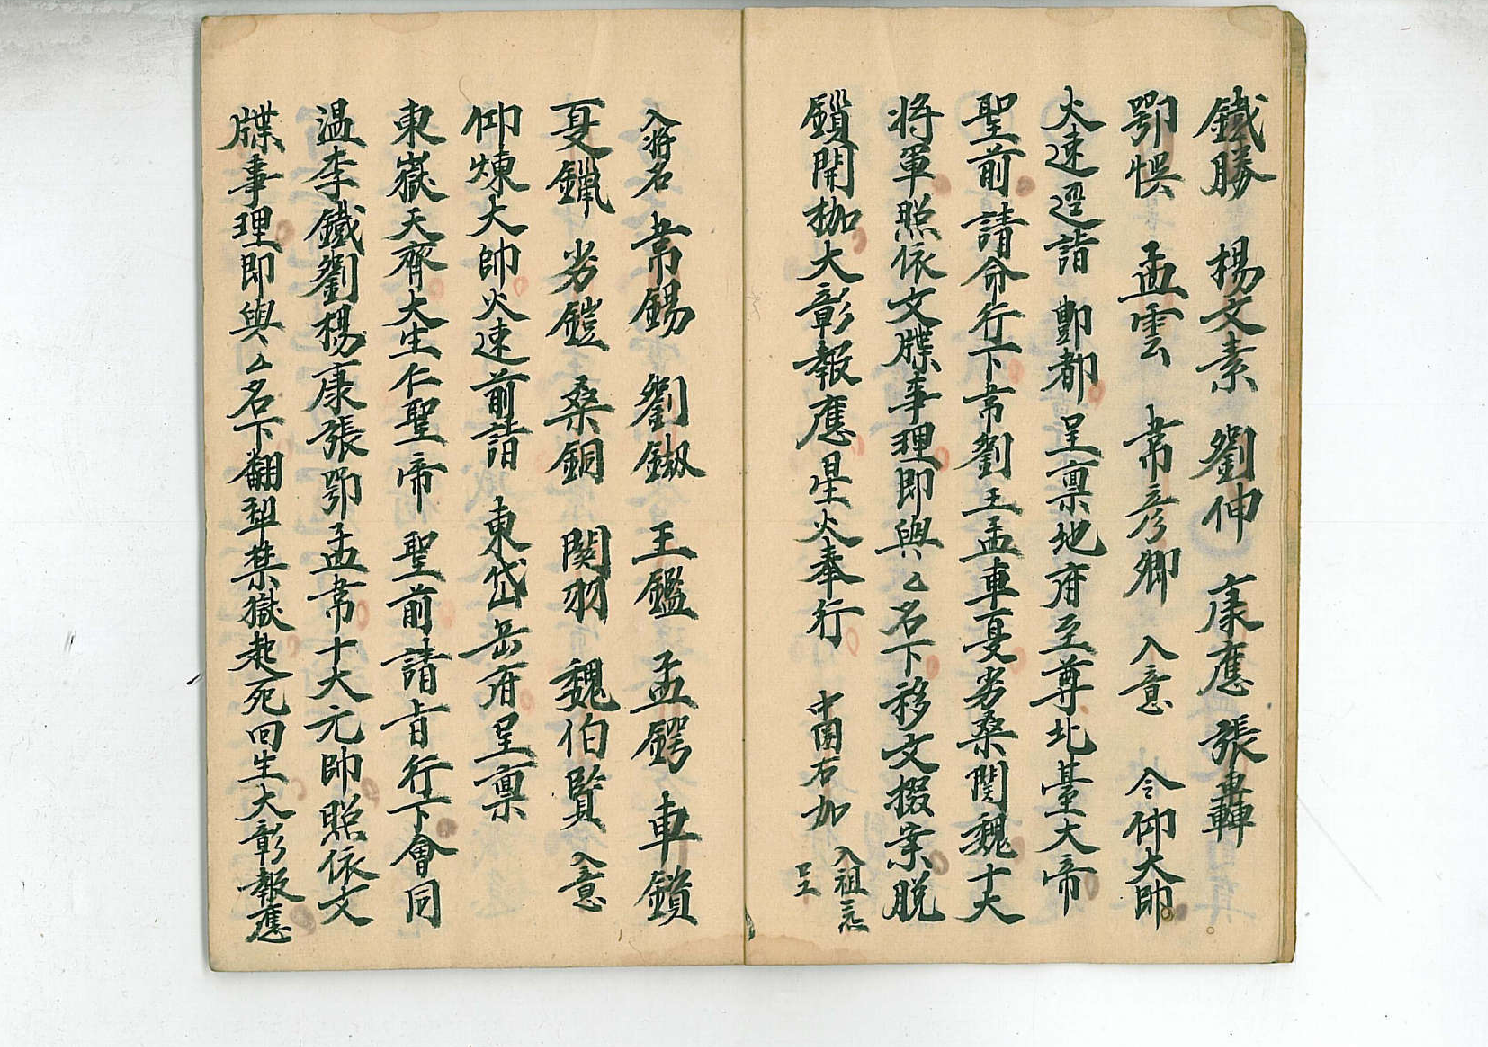 鐵勝 楊文素 劉伸 康應 張轟
鄂悞 孟雲 韋彥卿 入意 令仰大帥
火速逕詣 酆都 呈禀地府至尊北臺大帝
聖前請命行下韋劉王孟車夏劣桑関魏十大
将軍照依文牒事理即與厶名下移文掇案脱
鎖開枷大彰報應星火奉行 中闰右加 入祖
呈
入将名 韋錫 劉鎩 王鑑 孟鍔 車鎖
夏鑞 劣鎧 桑銅 関羽 魏伯賢 入意
仰煉大帥火速前詣 東岱岳府呈禀
東嶽天齊大生仁聖帝 聖前請旨行下會同
温李鐵劉楊康張鄂孟韋十大元帥照依文
牒事理即與厶名下翻犁禁獄起死回生大彰報應